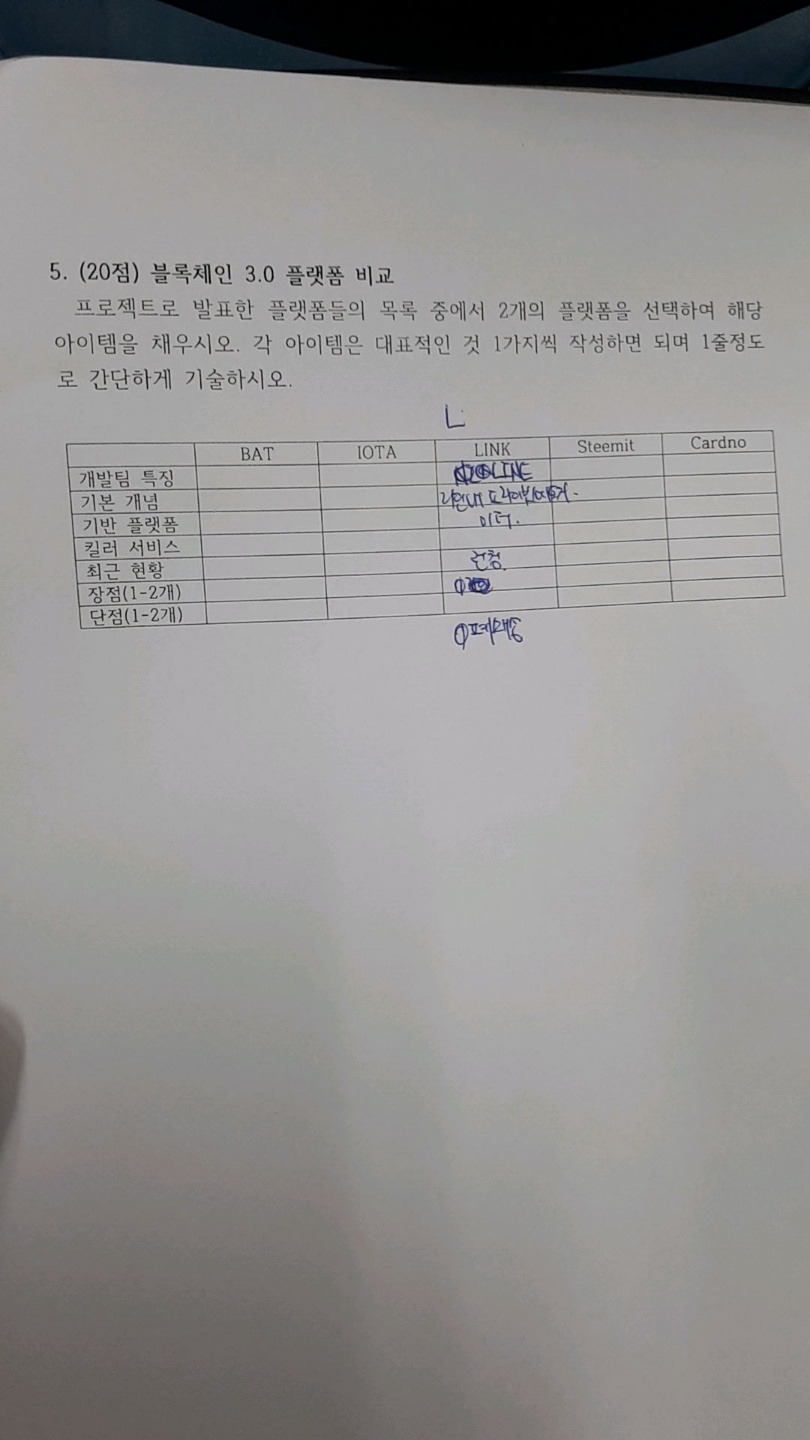 5. (20점) 블록체인 3.0 플랫폼 비교
프로젝트로 발표한 플랫폼들의 목록 중에서 2개의 플랫폼을 선택하여 해당
아이템을 채우시오. 각 아이템은 대표적인 것 1가지씩 작성하면 되며 1줄정도
로 간단하게 기술하시오.
L
BAT IOTA LINK Steemit Cardno
개발팀 특징 LINE
기본 개념
기반 플랫폼 이더.
킬러 서비스
최근 현황 런칭.
장점(1-2개)
단점(1-2개)